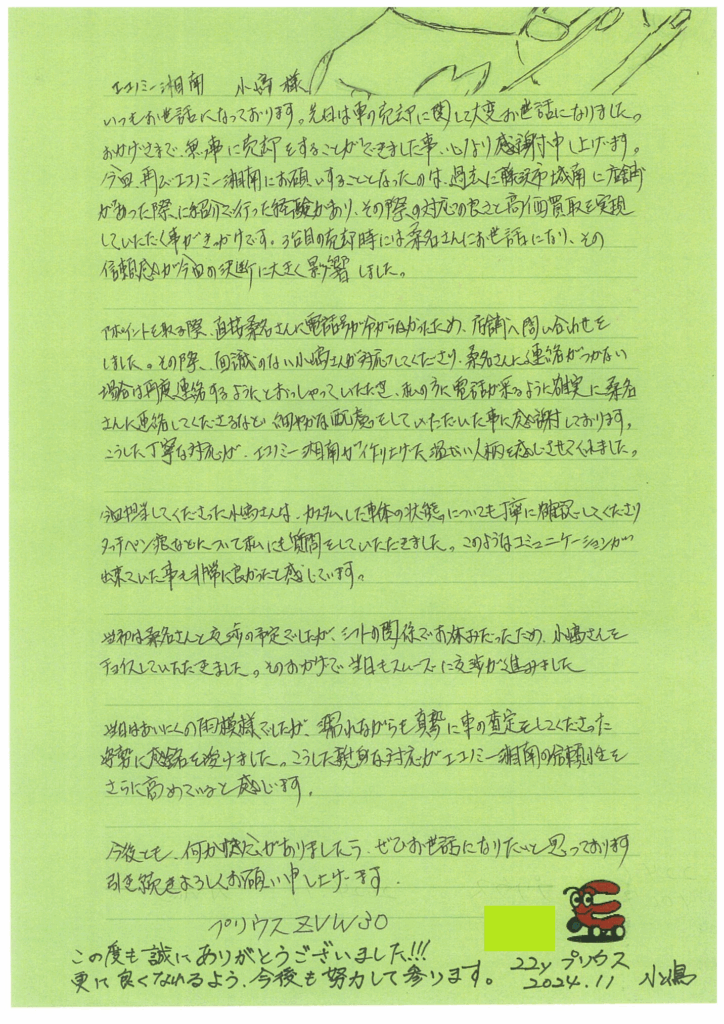 エコノミー湘南　小嶋 様
いつもお世話になっております。先日は車の売却に関して大変お世話になりました。
おかげさまで、無事に売却をすることができました事、心より感謝申し上げます。
今回、再びエコノミー湘南にお願いすることとなったのは、過去に藤沢市城南に店舗
があった際、に紹介で行った経験があり、その際の対応の良さと高価買取を実現
していただく事がきっかけです。3台目の売却時には桑名さんにお世話になり、その
信頼感が今回の決断に大きく影響しました。
アポイントを取る際、直接桑名さんに電話が分からなかったため、店舗へ問い合わせを
しました。その際、面識のない小嶋さんが対応してくださり、桑名さんに連絡がつかない
場合は再度連絡するようにとおっしゃっていただき、私の方に電話が来るように確実に桑名
さんに連絡してくださるなど、細やかな配慮をしていただいた事に感謝しております。
こうした丁寧な対応が、エコノミー湘南が作り上げた温かい人柄を感じさせてくれました。
今回担当してくださった小嶋さんは、カスタムした車体の状態についても丁寧に確認してくださり
タッチペン痕などについて私にも質問をしていただきました。このようなコミュニケーションが
出来ていた事も非常に良かったと感じています。
当初は桑名さんと交渉の予定でしたが、シフトの関係でお休みだったため、小嶋さんを
チョイスしていただきました。そのおかげで当日もスムーズに交渉が進みました
当日はあいにくの雨模様でしたが、濡れながらも真摯に車の査定をしてくださった
姿勢に感銘を受けました。こうした親身な対応がエコノミー湘南の信頼性を
さらに高めていると感じます。
今後とも、何か機会がありましたら、ぜひお世話になりたいと思っております
引き続きよろしくお願い申し上げます。
プリウスZVW30
この度も誠にありがとうございました!!!
更に良くなれるよう、今後も努力して参ります。
22y プリウス
2024.11　小嶋